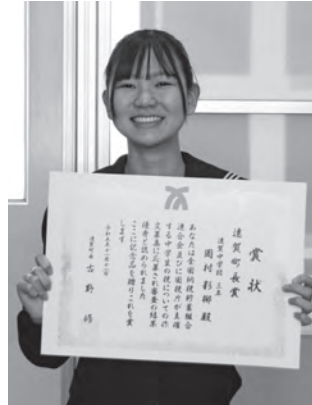 賞状
遠賀町長賞
遠賀中学校 三年
岡村彩郷 殿
あなたは全国納税貯蓄組合
連合会並びに国税庁が主催
する中学生の税についての作
文募集に応募され審査の結果
優秀と認められました
ここに記念品を贈りこれを賞
します
令和五年十一月十六日
遠賀町長 古野 修